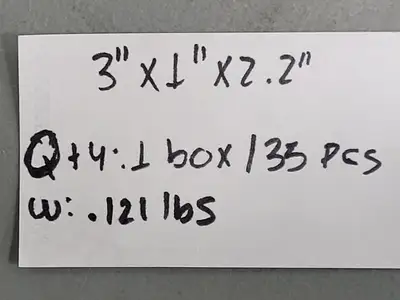 3" x 1" x 2.2"
Qty: 1 box / 35 pcs
w: .121 lbs